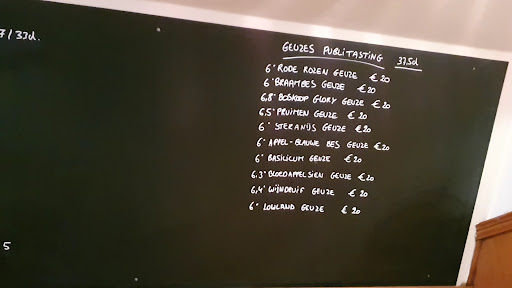 7/33cl.
GEUZES PUBLITASTING 37.5cl
6° RODE ROZEN GEUZE €20
6° BRAAMBES GEUZE €20
6,8° BOSKOOP GLORY GEUZE €20
6,5° PRUIMEN GEUZE €20
6° STERANIJS GEUZE €20
6° APPEL-BLAUWE BES GEUZE €20
6° BASILICUM GEUZE €20
6.3° BLOEDAPPELSIEN GEUZE €20
6,4° WIJNDRUIF GEUZE €20
6° LOWLAND GEUZE €20
5